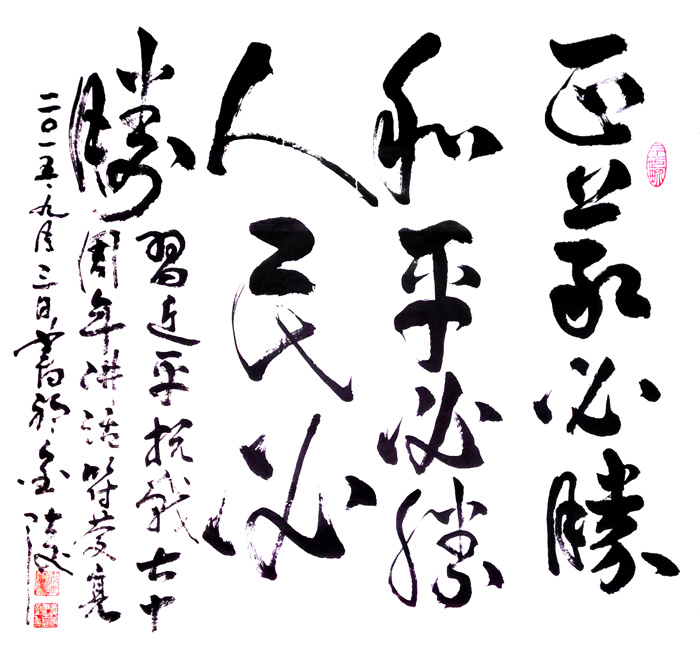 正義必勝
和平必勝
人民必
勝
習近平抗戰七十
周年讲话
二〇一五九月三日書於金陵